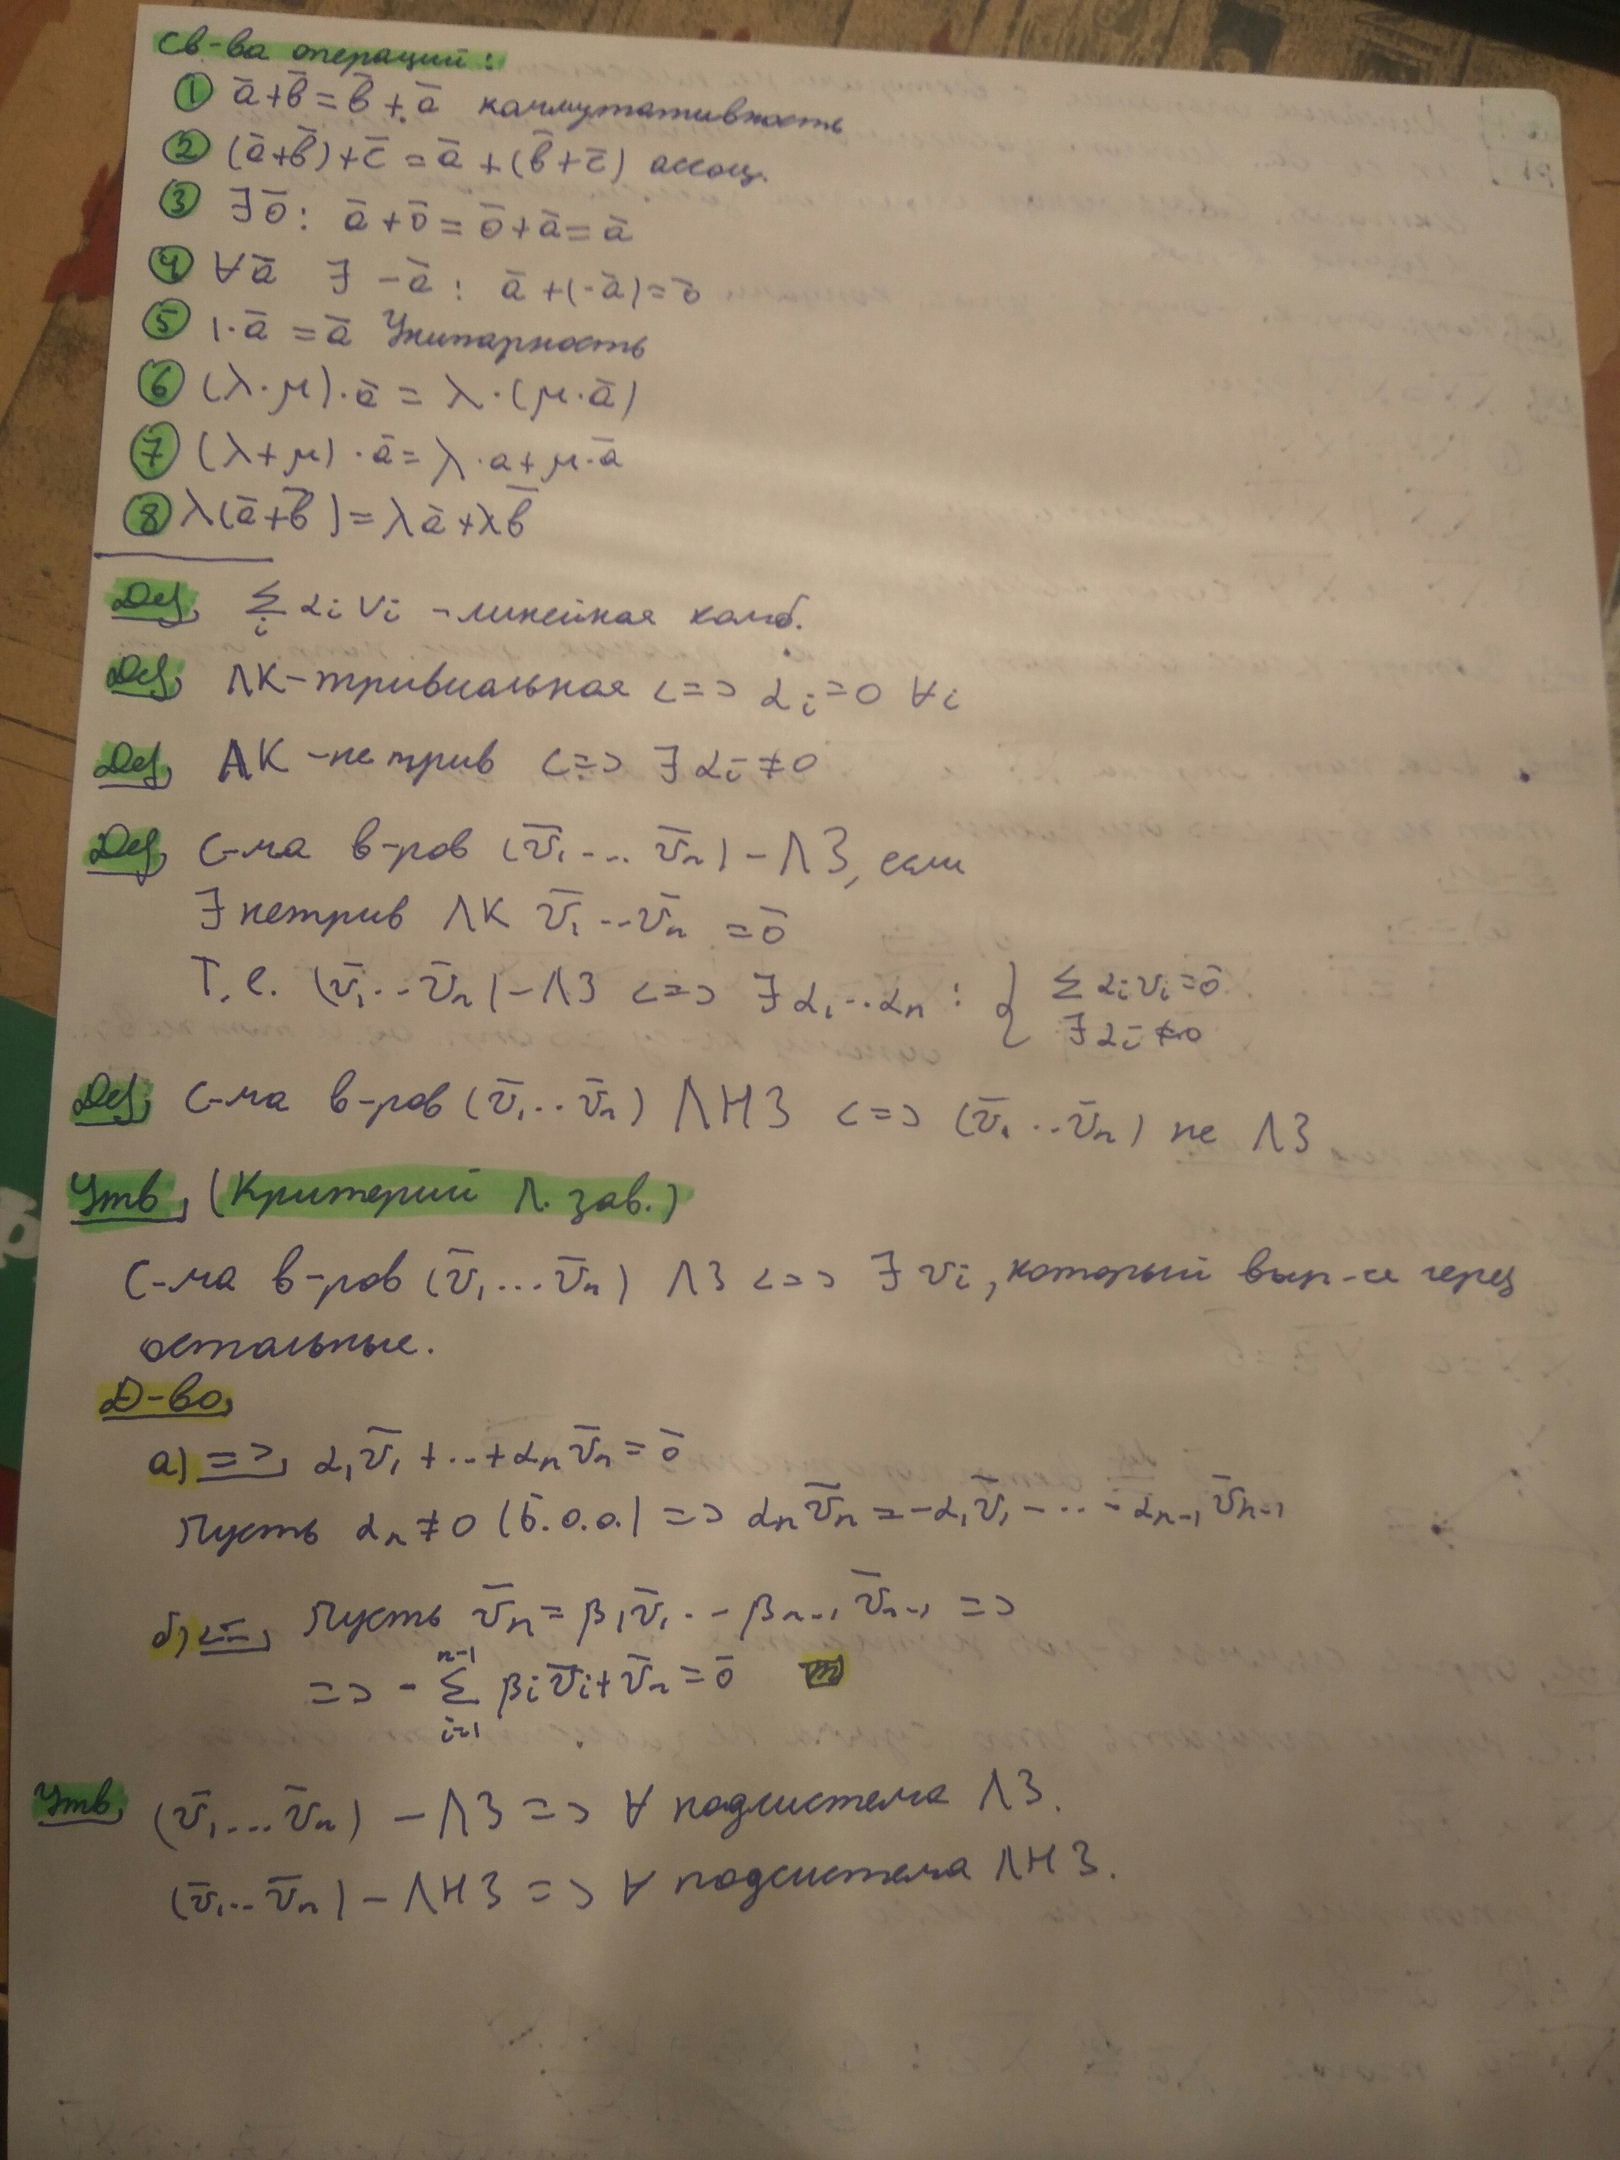 Св-ва операций:
① ā+b̄=b̄+ā коммутативность
② (ā+b̄)+c̄=ā+(b̄+c̄) ассоц.
③ ∃ō: ā+ō=ō+ā=ā
④ ∀ā ∃ -ā: ā+(-ā)=ō
⑤ 1·ā=ā Унитарность
⑥ (λ·μ)·ā=λ·(μ·ā)
⑦ (λ+μ)·ā=λ·a+μ·ā
⑧ λ(ā+b̄)=λā+λb̄
Def, Σ_i αi vi - линейная комб.
Def, ЛК-тривиальная <=> αi=0 ∀i
Def, ЛК-не трив <=> ∃ αi≠0
Def, С-ма в-ров (v̄₁...v̄ₙ)-ЛЗ, если
∃ нетрив ЛК v̄₁..v̄ₙ =ō
Т.е. (v̄₁..v̄ₙ)-ЛЗ <=> ∃ α₁..αₙ: { Σ αi vi=ō
∃ αi≠0
Def, С-ма в-ров (v̄₁..v̄ₙ) ЛНЗ <=> (v̄₁..v̄ₙ) не ЛЗ
Утв, (Критерий Л. зав.)
С-ма в-ров (v̄₁...v̄ₙ) ЛЗ <=> ∃ vi, который выр-ся через
остальные.
Д-во,
а) =>, α₁v̄₁+..+αₙv̄ₙ=ō
Пусть αₙ≠0 (б.о.о.) => αₙv̄ₙ=-α₁v̄₁-...-αₙ₋₁v̄ₙ₋₁
б) <=, Пусть v̄ₙ=β₁v̄₁..-βₙ₋₁v̄ₙ₋₁ =>
=> - Σ_{i=1}^{n-1} βi v̄i+v̄ₙ=ō
Утв, (v̄₁...v̄ₙ) - ЛЗ => ∀ подсистема ЛЗ.
(v̄₁..v̄ₙ) - ЛНЗ => ∀ подсистема ЛНЗ.